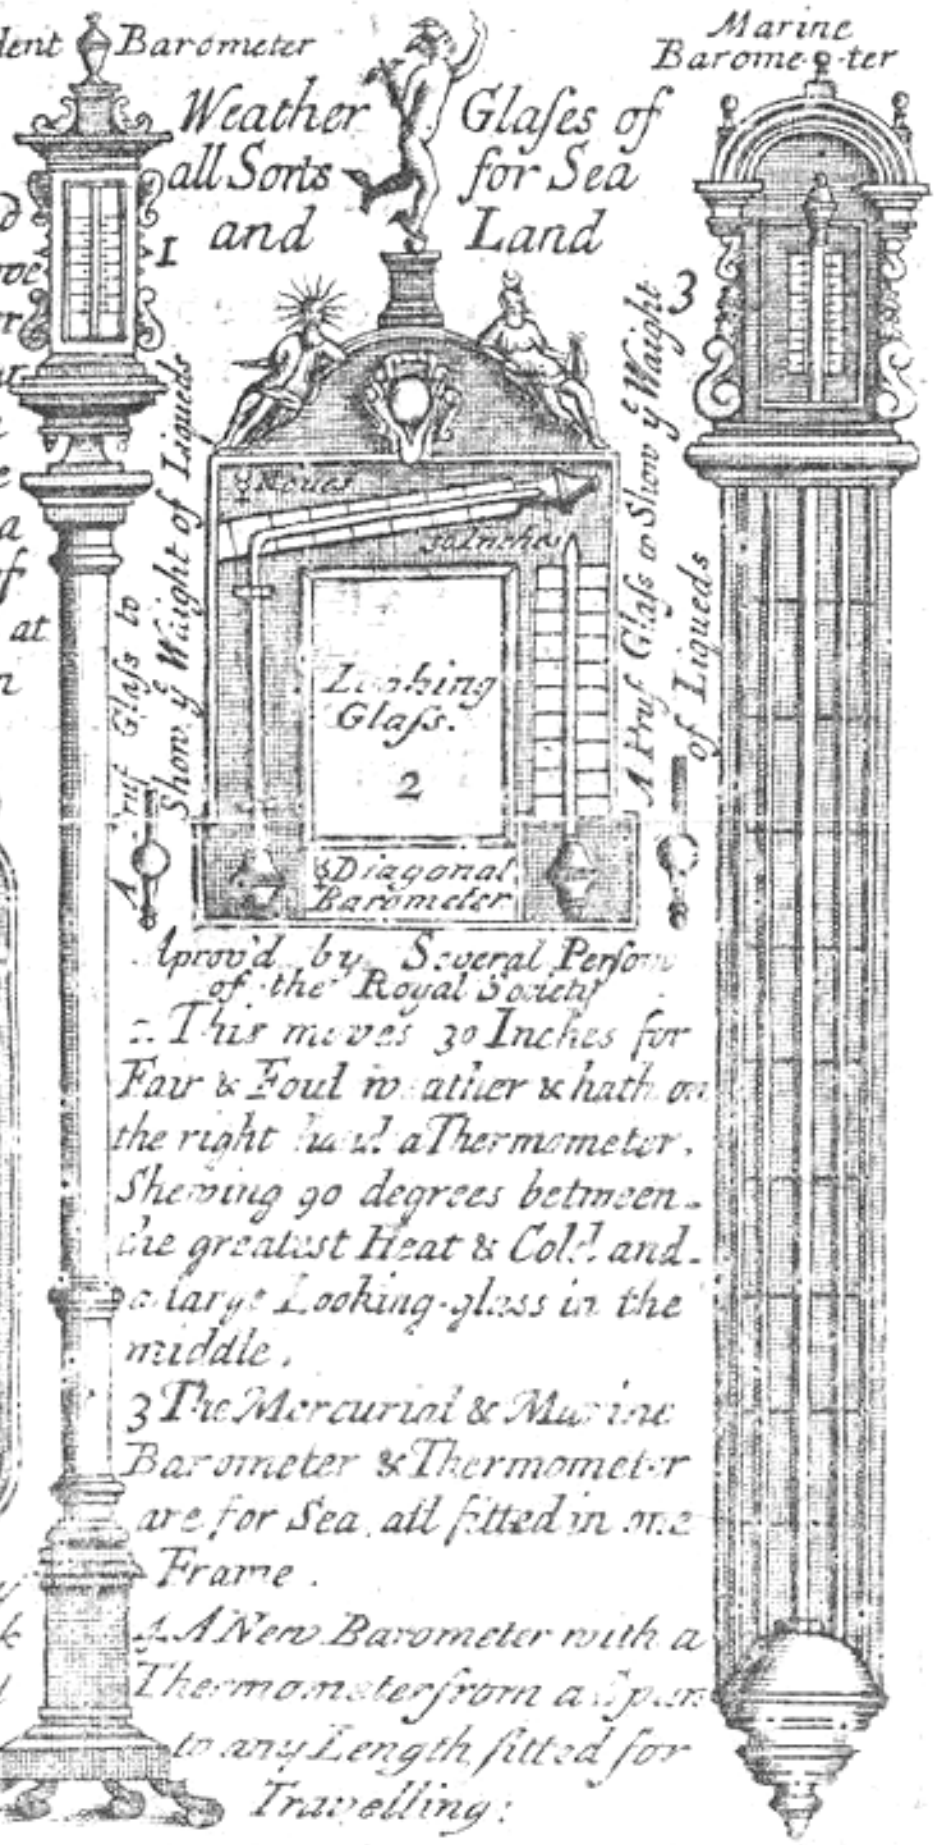 dent Barometer
Marine
Barome-ter
Weather Glaſses of
all Sorts for Sea
and Land
I
3
at
Show yͤ Waight of Liqueds
Glaſs to
A Pruf Glaſs to Show yͤ Waight
of Liqueds
yͤ Moues
30 Inches
Looking
Glaſs.
2
yͤ Diagonal
Barometer
Aprov'd by Several Perſons
of the Royal Society
2. This moves 30 Inches for
Fair & Foul weather & hath on
the right hand a Thermometer.
Shewing 90 degrees between
the greatest Heat & Cold and
a large Looking-glass in the
middle.
3 The Mercurial & Marine
Barometer & Thermometer
are for Sea all fitted in one
Frame.
4. A New Barometer with a
Thermometer from a Span
to any Length fitted for
Travelling: